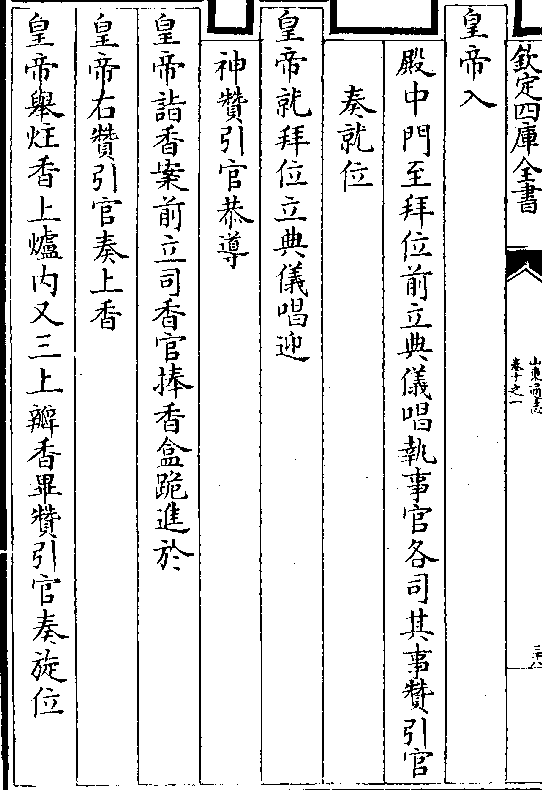 欽定四庫全書
山東通志
卷十之一
皇帝入
殿中門至拜位前立典儀唱執事官各司其事贊引官
奏就位
皇帝就拜位立典儀唱迎
神贊引官恭導
皇帝詣香案前立司香官捧香盒跪進於
皇帝右贊引官奏上香
皇帝舉炷香上爐内又三上瓣香畢贊引官奏旋位